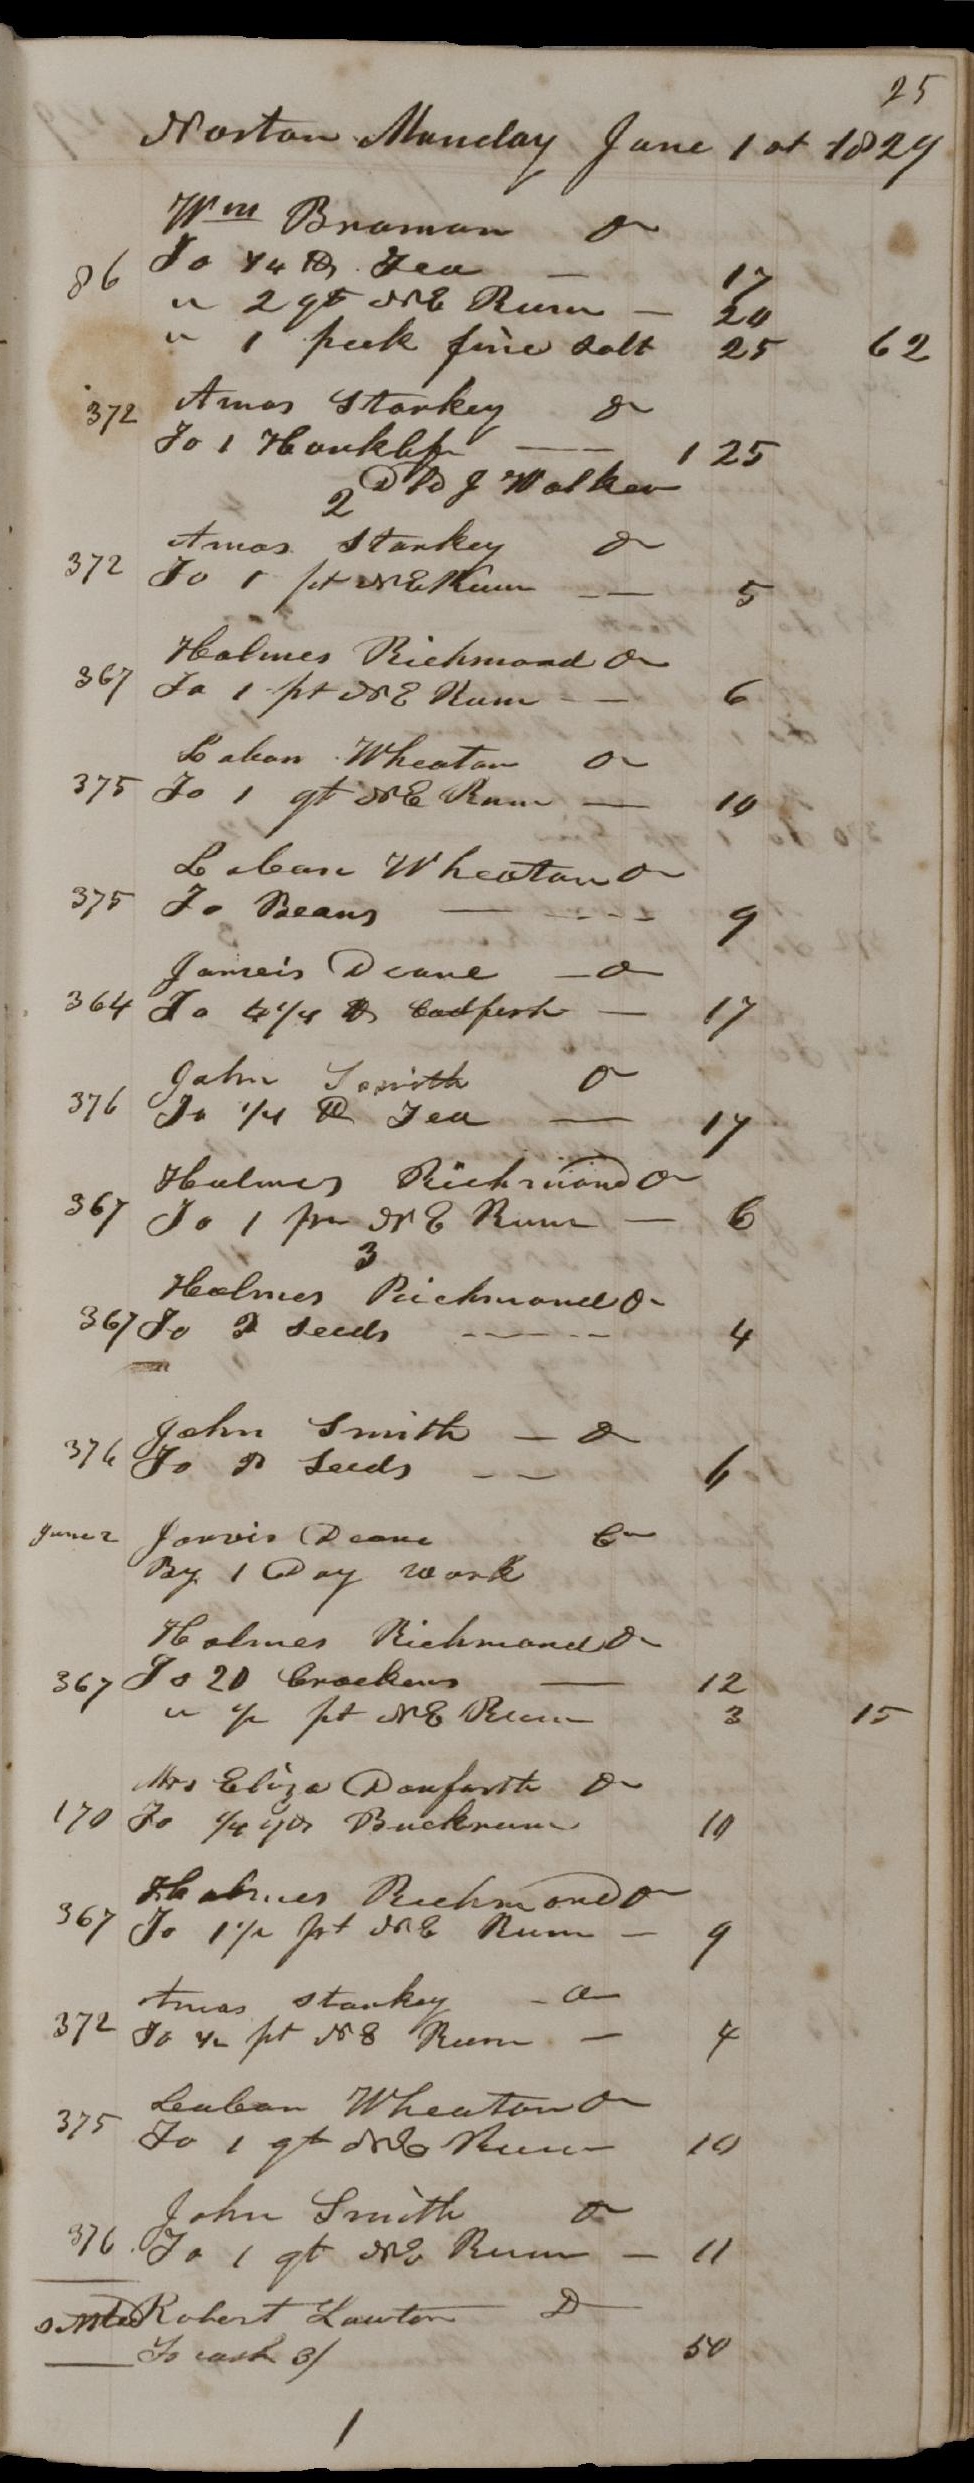 25
Norton Monday June 1st 1829
Wm Braman Dr
86 To 1/4 lb Tea — 17
" 2 qt N E Rum — 20
" 1 peck fine salt 25 62
Amos Starkey Dr
372 To 1 — 1 25
J Walker
2
Amos Starkey Dr
372 To 1 pt N E Rum — 5
Holmes Richmond Dr
367 To 1 pt N E Rum — 6
Laban Wheaton Dr
375 To 1 qt N E Rum — 10
Laban Wheaton Dr
375 To Beans — 9
Jarveis Deane — Dr
364 To 4 1/4 lb Codfish — 17
John Smith Dr
376 To 1/4 lb Tea — 17
Holmes Richmond Dr
367 To 1 N E Rum — 6
3
Holmes Richmond Dr
367 To seeds — 4
John Smith — Dr
376 To Seeds — 6
June 2 Jarvis Deane Cr
By 1 Day work
Holmes Richmond Dr
367 To 20 Crackers — 12
" 1/2 pt N E Rum 3 15
Mrs Eliza Danforth Dr
170 To 1/4 yds Buckram 10
Holmes Richmond Dr
367 To 1 1/2 pt N E Rum — 9
Amos Starkey - Dr
372 To 1/2 pt N E Rum — 4
Laban Wheaton Dr
375 To 1 qt N E Rum 10
John Smith Dr
376 To 1 qt N E Rum — 11
Robert Lawton D
To cash 3/ 50
1